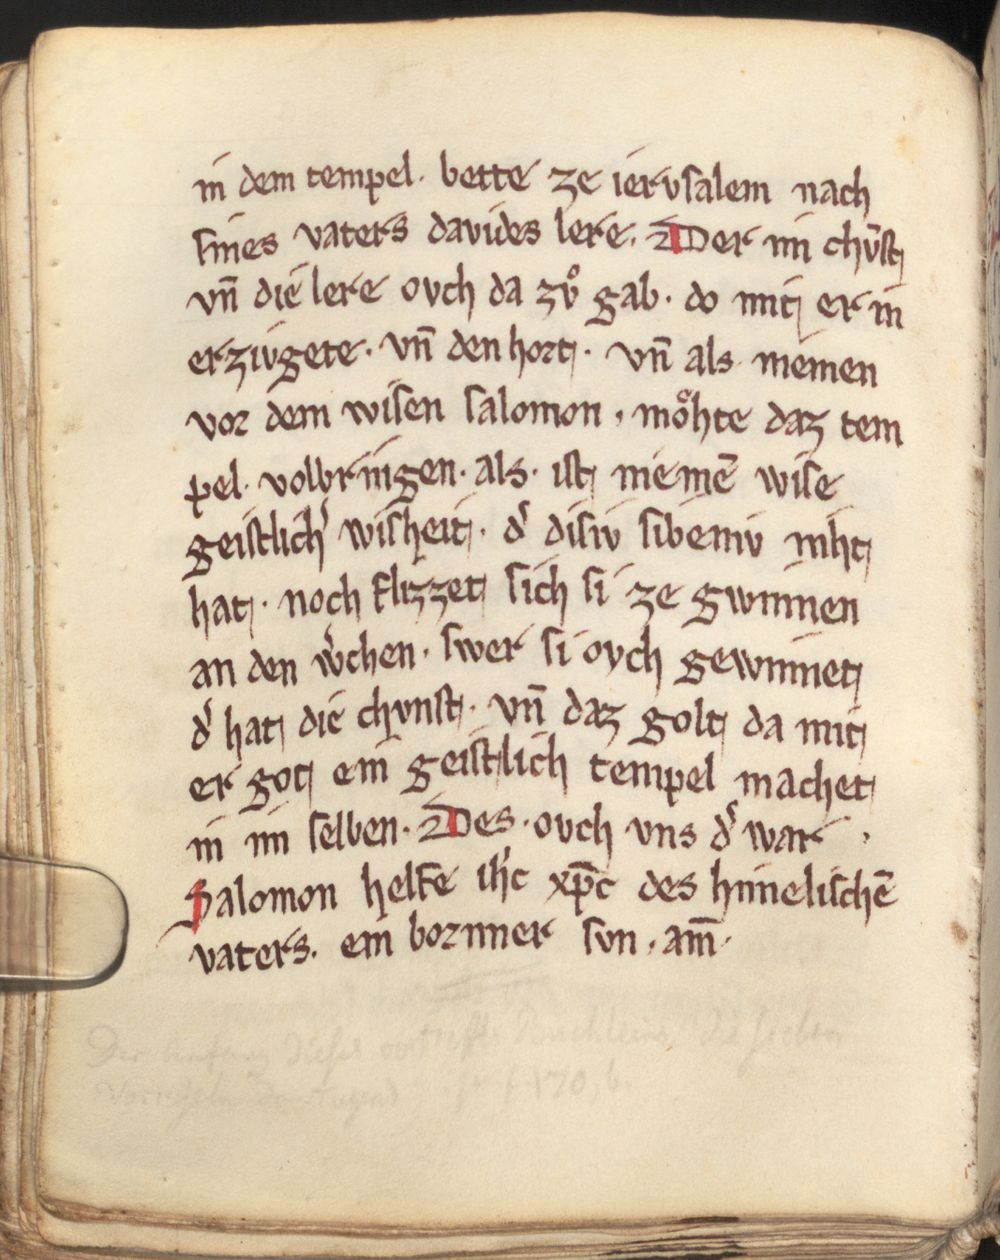 in dem tempel· bette ze iervsalem nach
ſines vaters davides lere. Der im chv̄ſt
vn̄ die lere ovch da zvͦ gab· do mit er in
erzivgete· vn̄ den hort· vn̄ als niemen
vor dem wiſen ſalomon· moͤhte daz tem
pel· volbringen· als· iſt niemē wiſe
geiſtlich͛ wiſheit· d͛ diſiv ſibeniv niht
hat· noch flizzet ſich ſi ze gwinnen
an den w͛chen· ſwer ſi ovch gewinnet
d͛ hat die chvnſt· vn̄ daz golt da mit
er got ein geiſtlich tempel machet
in im ſelben· Des· ovch vns d͛ war·
Salomon helfe ih͛c xp̄c des himeliſchē
vaters· ein borniner ſvn· am̄·
Der Anfang dieses Buchleins die sieben
f. 170, b.